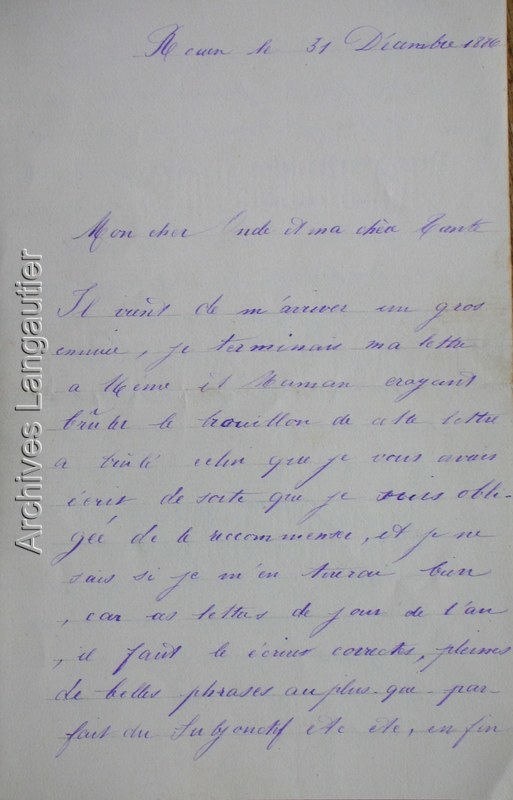 Rouen le 31 Décembre 1886
Mon cher Oncle et ma chère Tante
Il vient de m'arriver un gros
ennuie, je terminais ma lettre
a Mémé et Maman croyant
brûler le brouillon de cette lettre
a brûlé celui que je vous avais
écrit de sorte que je suis obli-
gée de le recommencer, et je ne
sais si je m'en tirerai bien
, car ces lettres de jour de l'an
, il faut le écrire correctes, pleines
de belles phrases au plus-que-par-
fait du Subjonctif etc etc, enfin
Archives Langautier